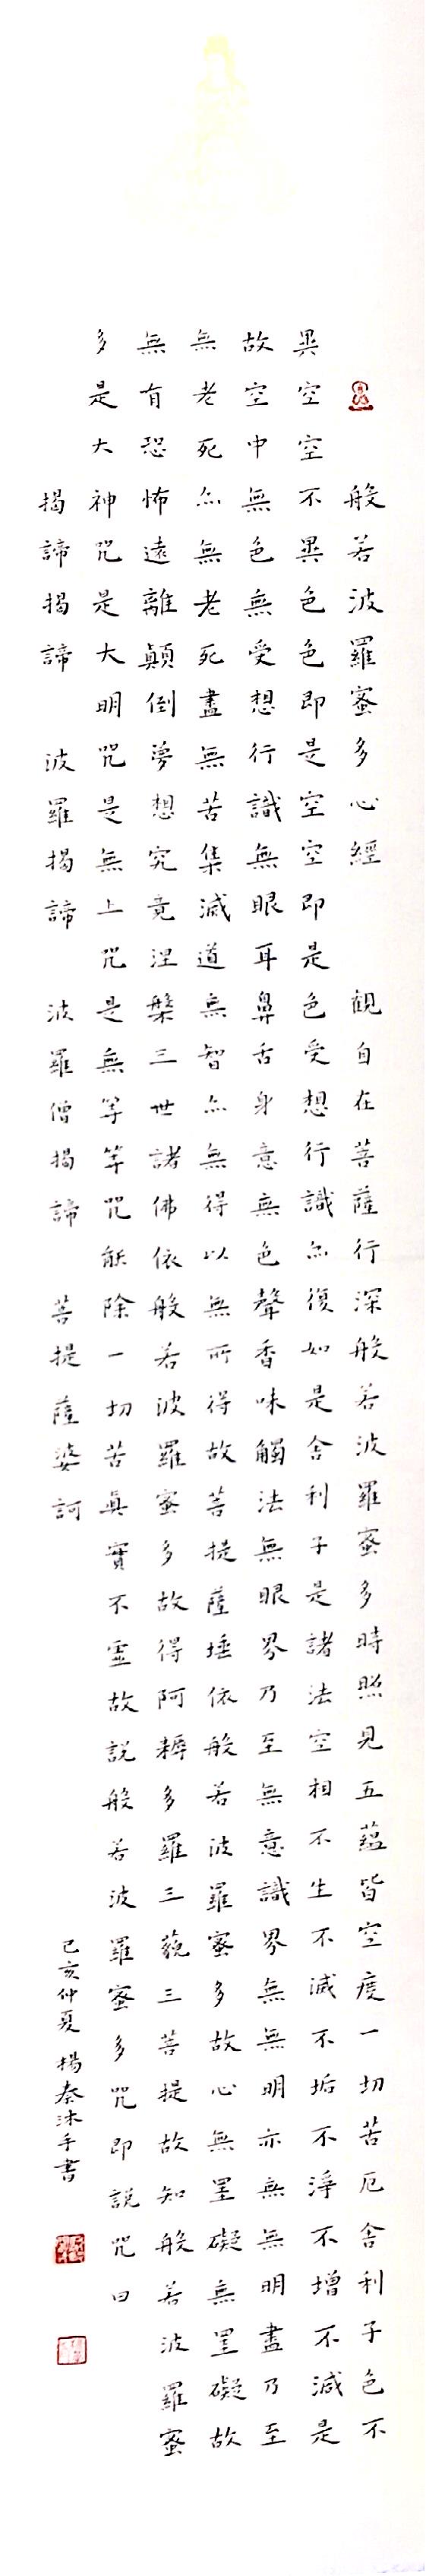 般若波羅蜜多心經 觀自在菩薩行深般若波羅蜜多時照見五蘊皆空度一切苦厄舍利子色不
異空空不異色色即是空空即是色受想行識亦復如是舍利子是諸法空相不生不滅不垢不淨不增不減是
故空中無色無受想行識無眼耳鼻舌身意無色聲香味觸法無眼界乃至無意識界無無明亦無無明盡乃至
無老死亦無老死盡無苦集滅道無智亦無得以無所得故菩提薩埵依般若波羅蜜多故心無罣礙無罣礙故
無有恐怖遠離顛倒夢想究竟涅槃三世諸佛依般若波羅蜜多故得阿耨多羅三藐三菩提故知般若波羅蜜
多是大神咒是大明咒是無上咒是無等等咒能除一切苦真實不虛故說般若波羅蜜多咒即說咒曰
揭諦揭諦 波羅揭諦 波羅僧揭諦 菩提薩婆訶
己亥仲夏 楊秦沐手書